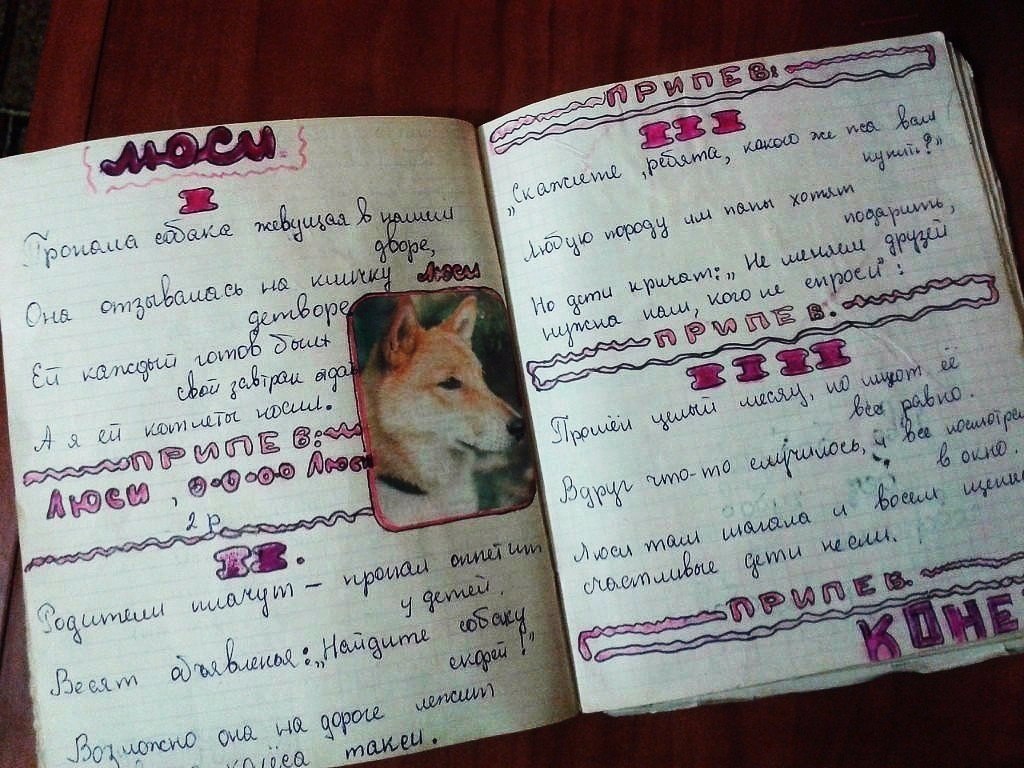 ЛЮСИ
I
Пропала собака жевущая в нашем
дворе,
Она отзывалась на кличку Люси
детворе
Ей каждый готов был
свой завтрак отдать
А я ей котлеты носил.
ПРИПЕВ:
Люси, о-о-о-о Люси
2 р
II.
Родители плачут – пропал аппетит
у детей.
Весят объявленья: „Найдите собаку
скорей!"
Возможно она на дороге лежит
колёса такси.
ПРИПЕВ:
III
„Скажите, ребята, какого же пса вам
купить?"
Любую породу им папы хотят
подарить,
Но дети кричат: „Не меняем друзей
нужна нам, кого не спроси":
ПРИПЕВ:
IIII
Прошёл целый месяц, но ищют её
все равно.
Вдруг что-то случилось, и все посмотре
в окно.
Люси там шагала и восем щенков
счастливые дети несли.
ПРИПЕВ.
КОНЕ